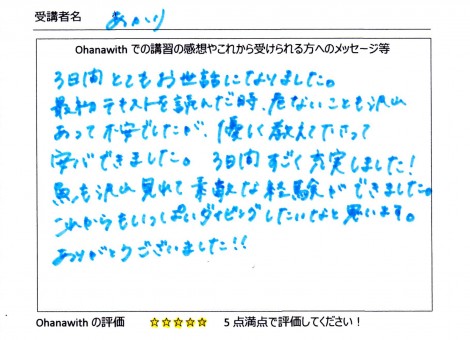 受講者名 あかり
Ohanawith での講習の感想やこれから受けられる方へのメッセージ等
3日間とてもお世話になりました。
最初テキストを読んだ時、危ないことも沢山
あって不安でしたが、優しく教えて下さって
安心できました。 3日間すごく充実しました!
魚も沢山見れて素敵な経験ができました。
これからもいっぱいダイビングしたいなと思います。
ありがとうございました!!
Ohanawith の評価 ☆☆☆☆☆ 5点満点で評価してください!